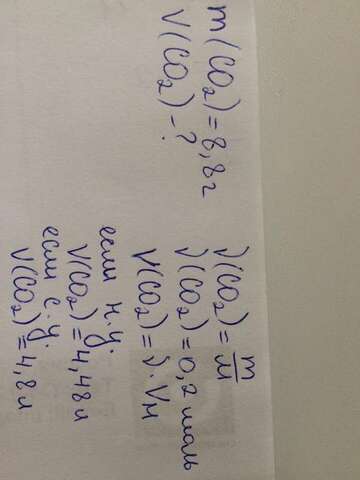 m(CO₂)=8,8г
V(CO₂)-?
ν(CO₂)=m/M
ν(CO₂)=0,2 моль
V(CO₂)=ν·Vм
если н.у.
V(CO₂)=4,48л
если с.у.
V(CO₂)=4,8л